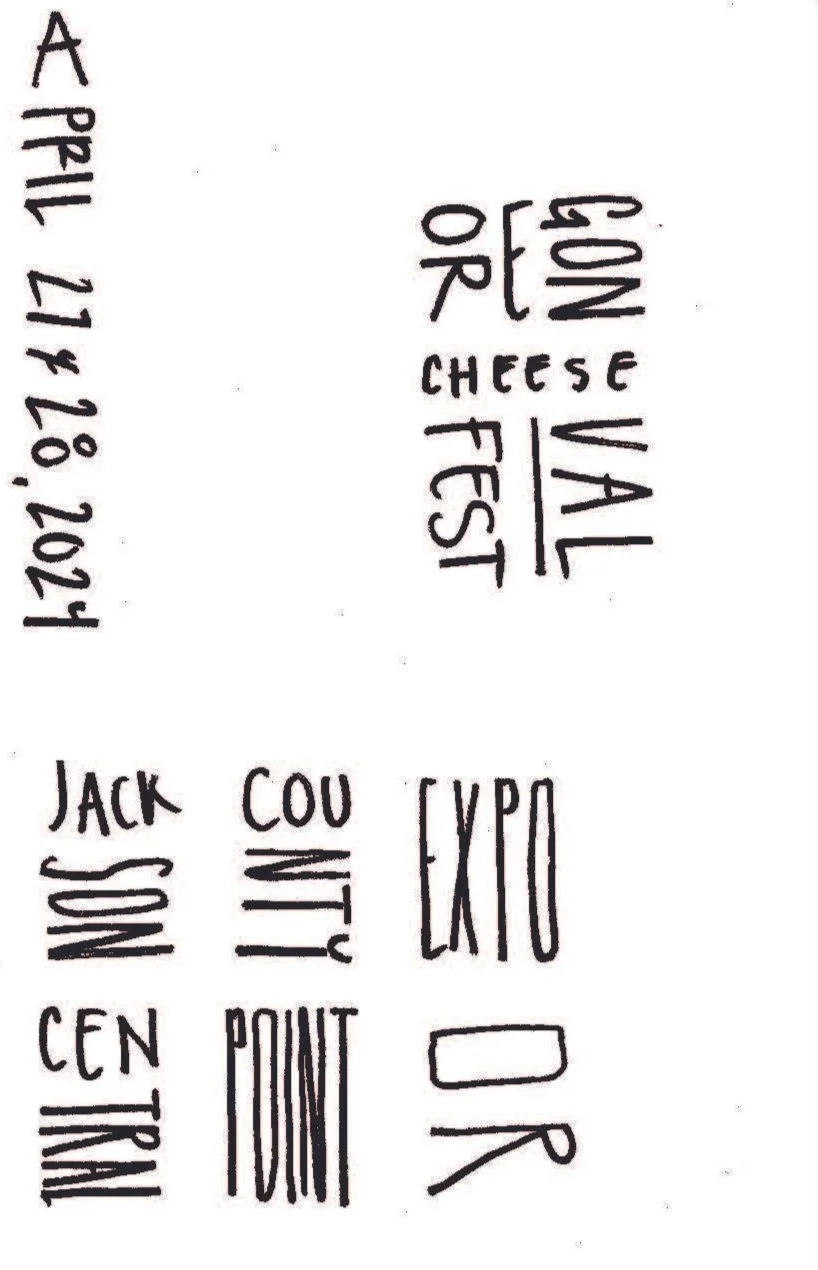 APRIL 27 & 28, 2024
OR
E
GON
CHEESE
FEST
I
VAL
JACK
SON
COU
NTY
EXPO
CEN
TRAL
POINT
OR